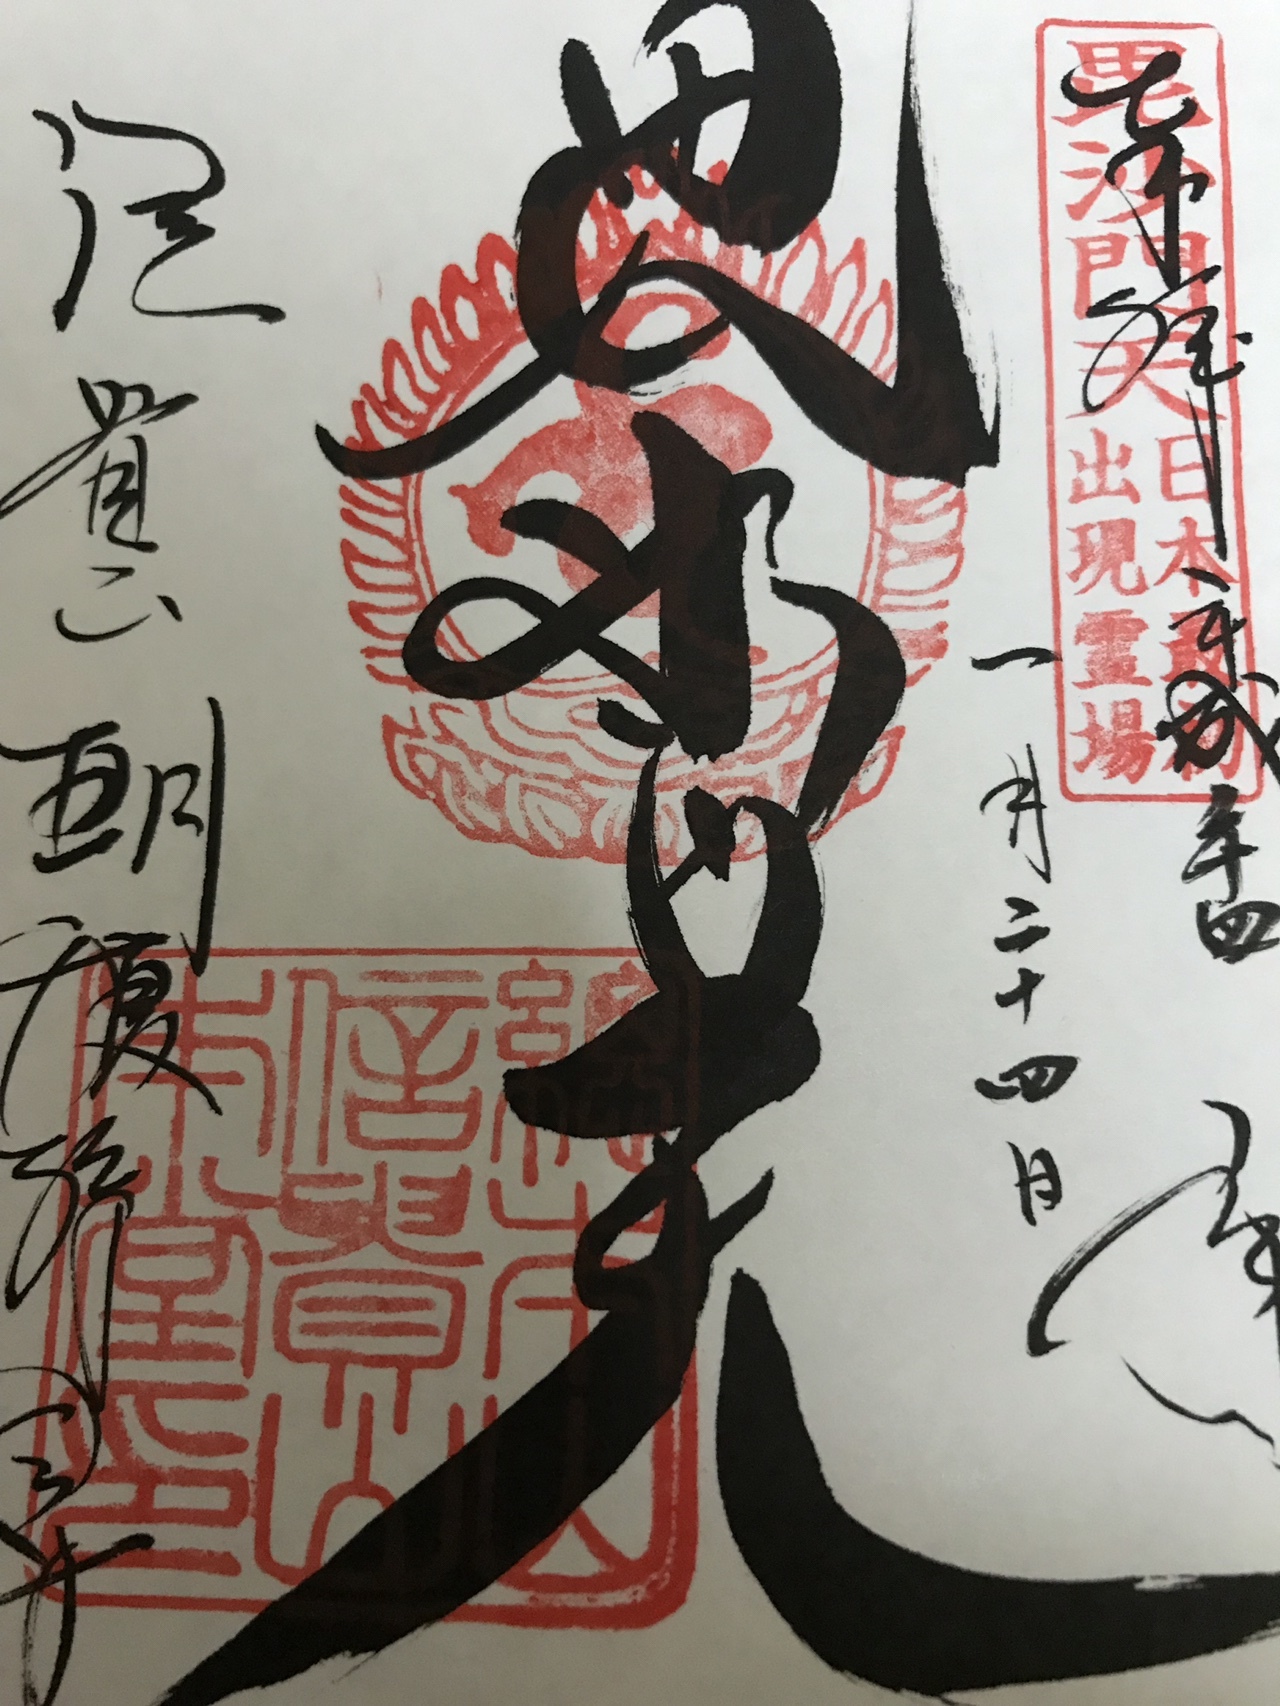 毘沙門天
日本最初
出現霊場
奉拝
平成
一月二十四日
毘沙門天
総本山
信貴山
本堂印
信貴山
朝護孫子寺